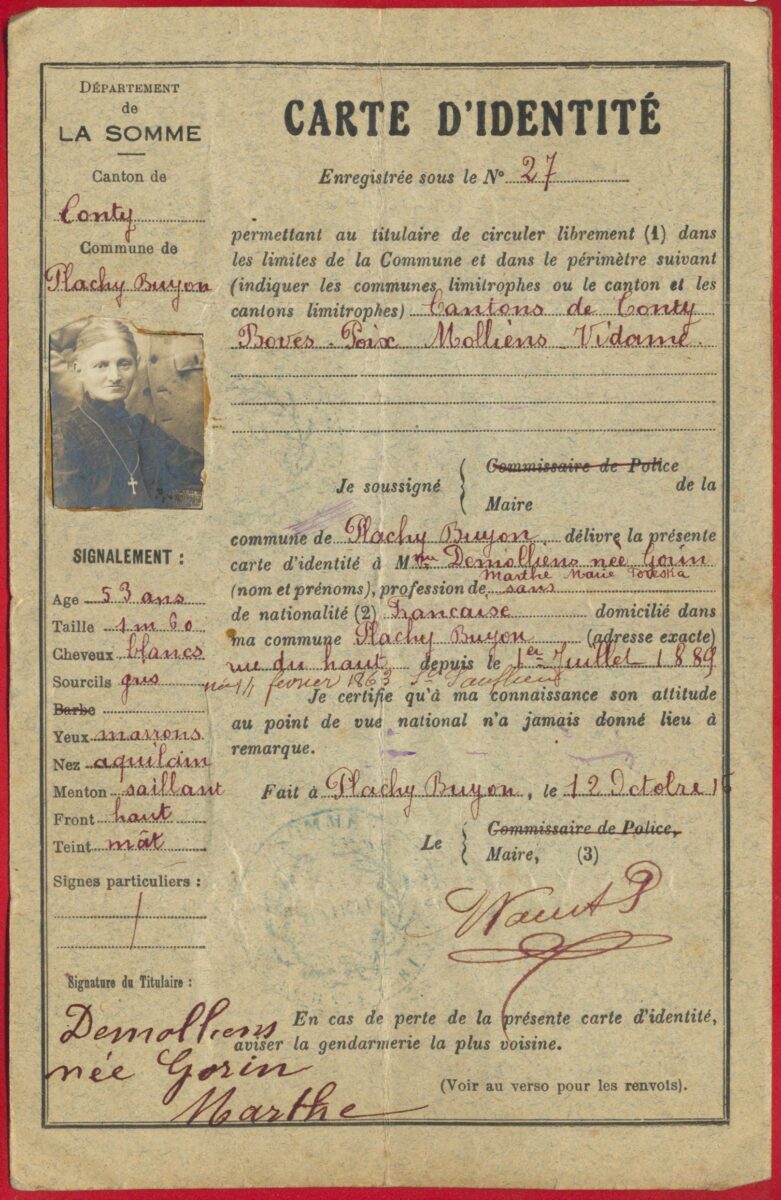 DÉPARTEMENT
de
LA SOMME
Canton de
Conty
Commune de
Plachy Buyon
SIGNALEMENT :
Age 53 ans
Taille 1m60
Cheveux blancs
Sourcils gris
Barbe
Yeux marrons
Nez aquilain
Menton saillant
Front haut
Teint mât
Signes particuliers :
Signature du Titulaire :
Demolliens
née Gorin
Marthe
CARTE D'IDENTITÉ
Enregistrée sous le N° 27
permettant au titulaire de circuler librement (1) dans
les limites de la Commune et dans le périmètre suivant
(indiquer les communes limitrophes ou le canton et les
cantons limitrophes) Cantons de Conty
Boves - Poix Molliens - Vidame.
Commissaire de Police
Je soussigné de la
Maire
commune de Plachy Buyon délivre la présente
carte d'identité à Mme Demolliens née Gorin
Marthe Marie
(nom et prénoms), profession de sans
de nationalité (2) Française domicilié dans
ma commune Plachy Buyon (adresse exacte)
rue du haut depuis le 1er Juillet 1889
née 14 fevrier 1863
Je certifie qu'à ma connaissance son attitude
au point de vue national n'a jamais donné lieu à
remarque.
Fait à Plachy Buyon, le 12 Octobre 16
Commissaire de Police,
Le
Maire, (3)
En cas de perte de la présente carte d'identité,
aviser la gendarmerie la plus voisine.
(Voir au verso pour les renvois).